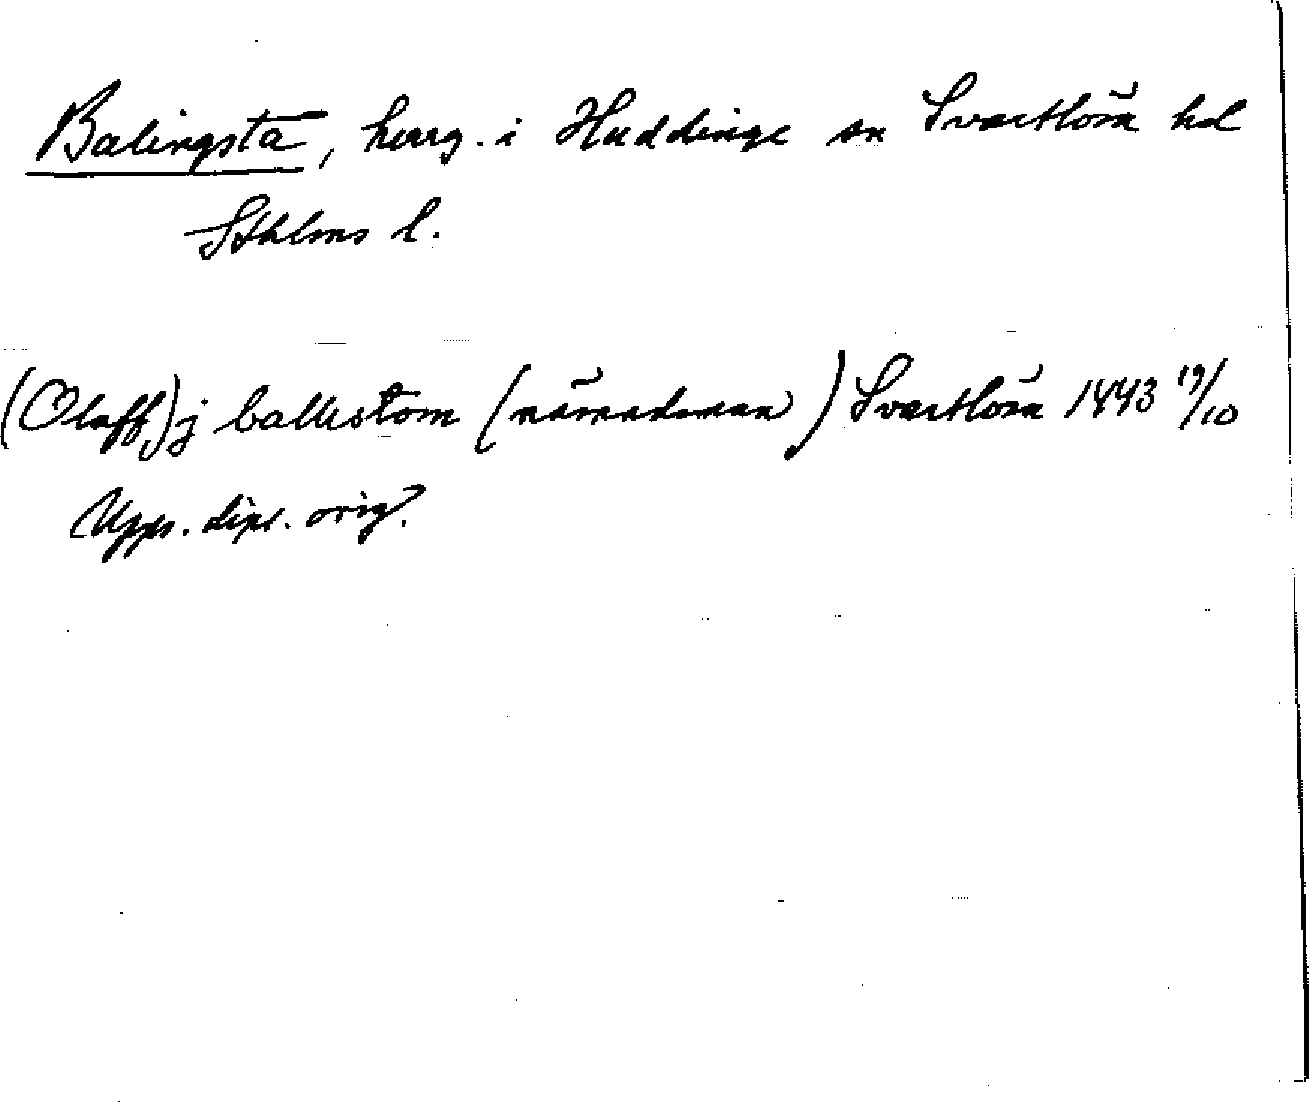 Balingsta, herrg. i Huddinge sn Svartlösa hd
Sthlms l.
(Olaff) j ballestom (nämndeman) Svartlösa 1443 19/10
Upps. dipl. orig.